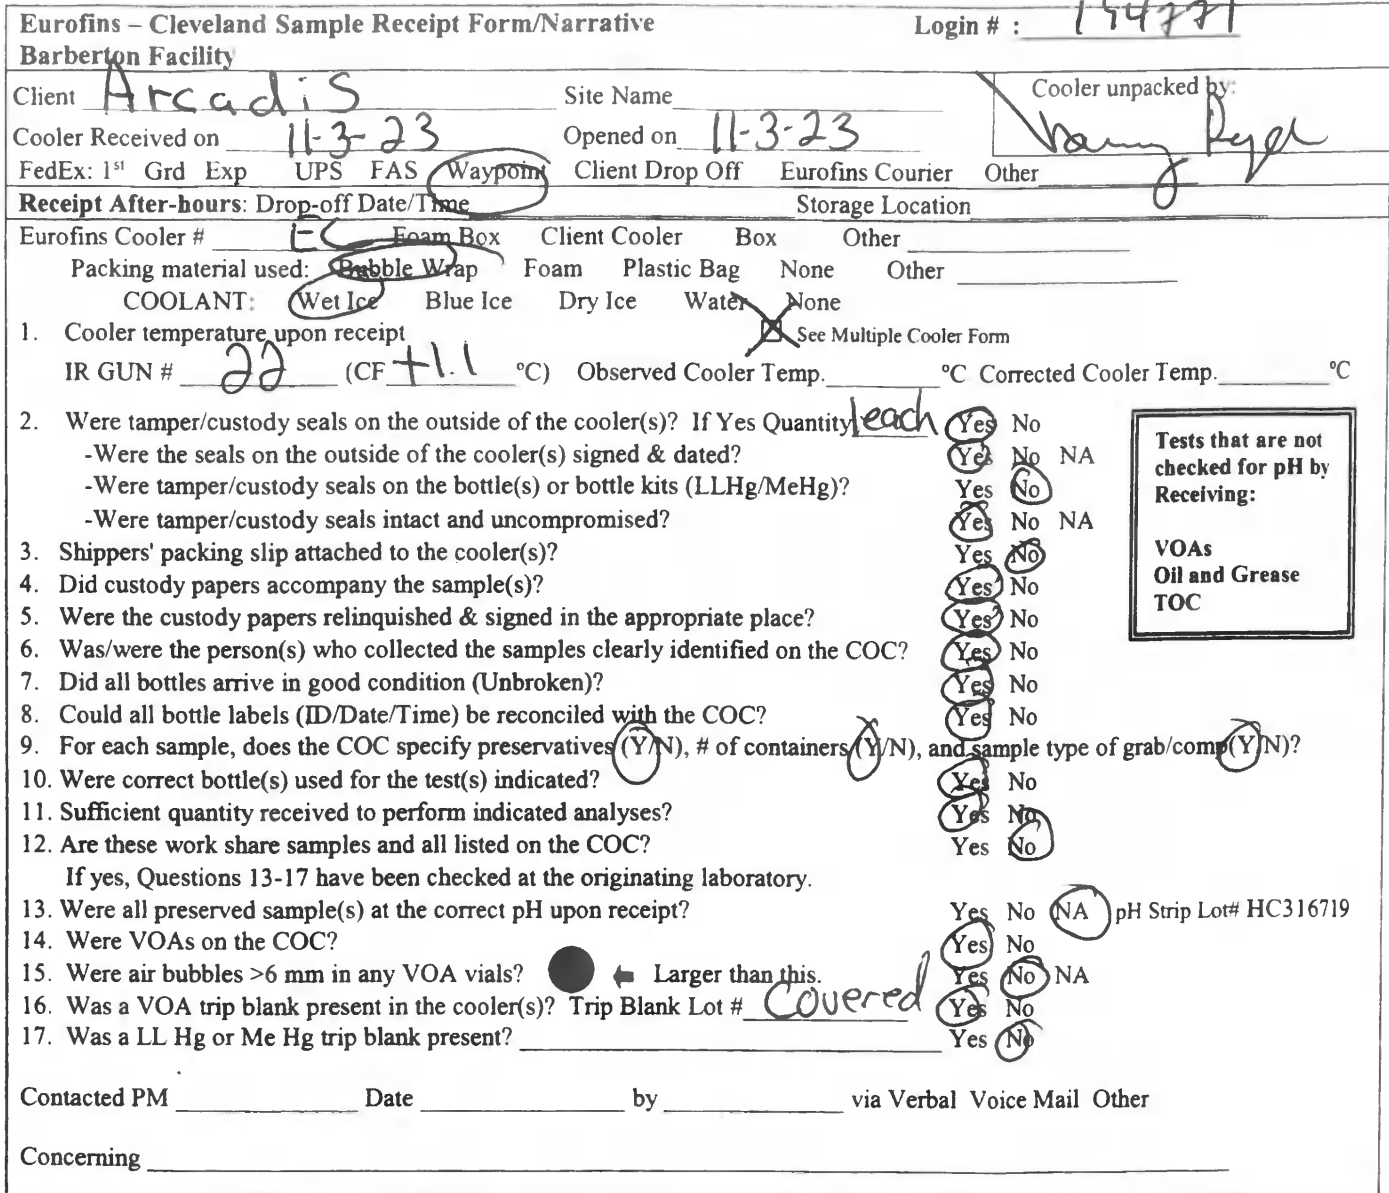 Eurofins – Cleveland Sample Receipt Form/Narrative Login # : 194771
Barberton Facility
Client Arcadis Site Name Cooler unpacked by:
Cooler Received on 11-3-23 Opened on 11-3-23
FedEx: 1st Grd Exp UPS FAS Waypoint Client Drop Off Eurofins Courier Other
Receipt After-hours: Drop-off Date/Time Storage Location
Eurofins Cooler # EC Foam Box Client Cooler Box Other
Packing material used: Bubble Wrap Foam Plastic Bag None Other
COOLANT: Wet Ice Blue Ice Dry Ice Water None
1. Cooler temperature upon receipt See Multiple Cooler Form
IR GUN # 22 (CF +1.1 °C) Observed Cooler Temp. °C Corrected Cooler Temp. °C
2. Were tamper/custody seals on the outside of the cooler(s)? If Yes Quantity 1 each Yes No
-Were the seals on the outside of the cooler(s) signed & dated? Yes No NA
-Were tamper/custody seals on the bottle(s) or bottle kits (LLHg/MeHg)? Yes No
-Were tamper/custody seals intact and uncompromised? Yes No NA
3. Shippers' packing slip attached to the cooler(s)? Yes No
4. Did custody papers accompany the sample(s)? Yes No
5. Were the custody papers relinquished & signed in the appropriate place? Yes No
6. Was/were the person(s) who collected the samples clearly identified on the COC? Yes No
7. Did all bottles arrive in good condition (Unbroken)? Yes No
8. Could all bottle labels (ID/Date/Time) be reconciled with the COC? Yes No
Tests that are not
checked for pH by
Receiving:
VOAs
Oil and Grease
TOC
9. For each sample, does the COC specify preservatives (Y/N), # of containers (Y/N), and sample type of grab/comp(Y/N)?
10. Were correct bottle(s) used for the test(s) indicated? Yes No
11. Sufficient quantity received to perform indicated analyses? Yes No
12. Are these work share samples and all listed on the COC? Yes No
If yes, Questions 13-17 have been checked at the originating laboratory.
13. Were all preserved sample(s) at the correct pH upon receipt? Yes No NA pH Strip Lot# HC316719
14. Were VOAs on the COC? Yes No
15. Were air bubbles >6 mm in any VOA vials? Larger than this. Yes No NA
16. Was a VOA trip blank present in the cooler(s)? Trip Blank Lot # Covered Yes No
17. Was a LL Hg or Me Hg trip blank present? Yes No
Contacted PM Date by via Verbal Voice Mail Other
Concerning